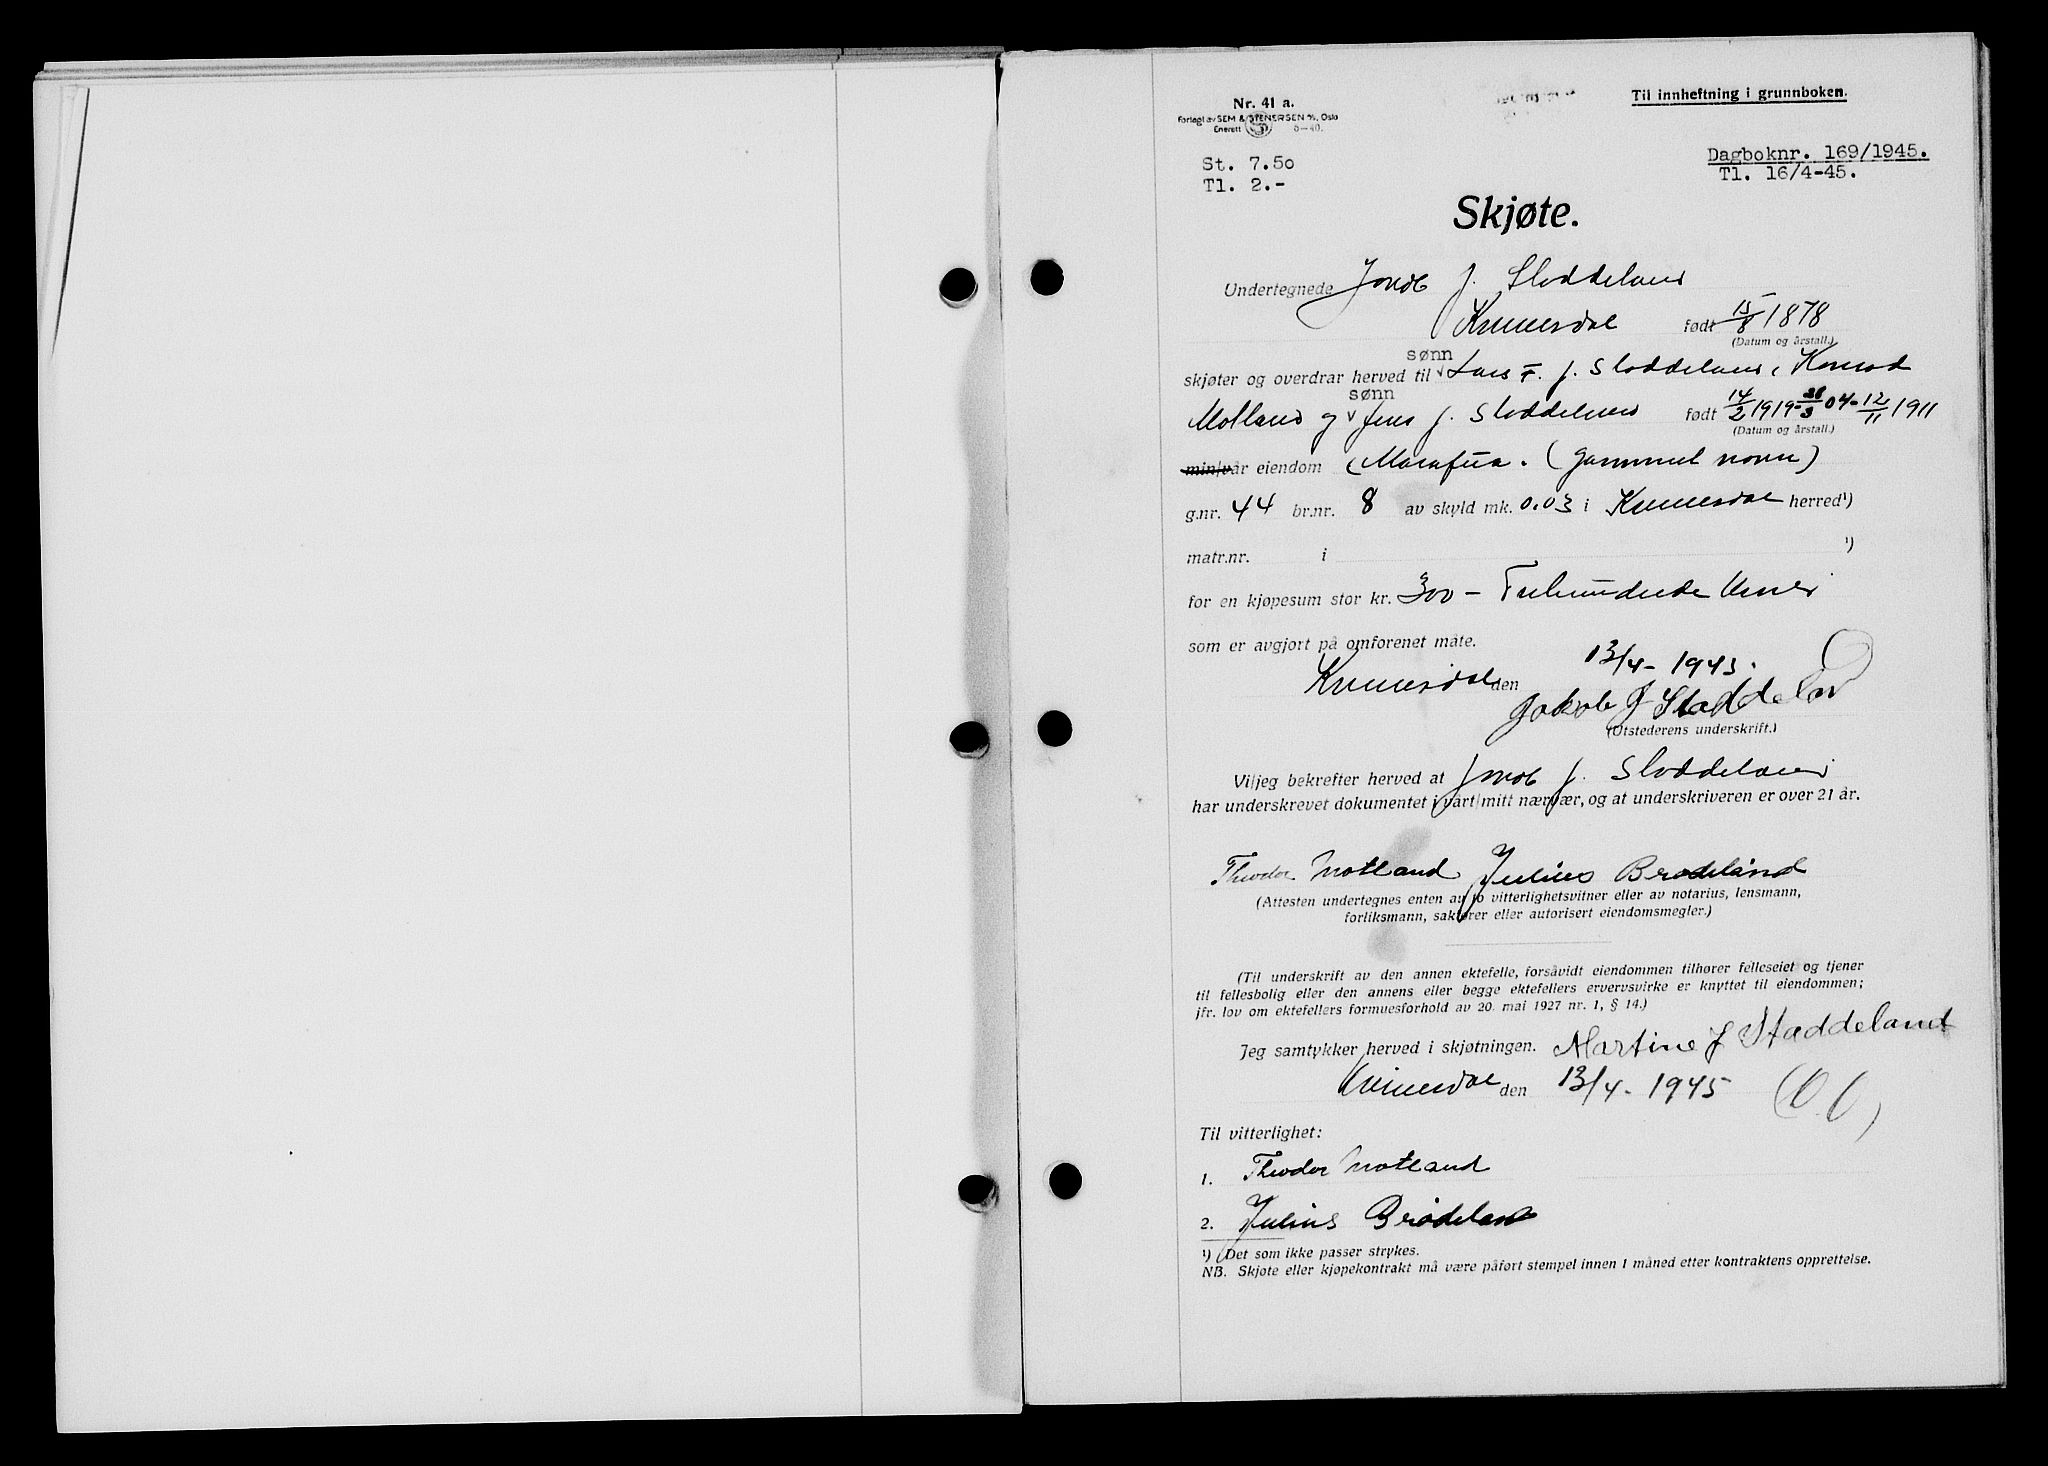 Nr. 41 a.
Forlagt av SEM & STENERSEN A/S, Oslo
Enerett 8-40.
Til innheftning i grunnboken.
St. 7.50
Tl. 2.-
Dagboknr. 169/1945.
Tl. 16/4-45.
Skjøte.
Undertegnede Jakob J. Stoddeland
Kvinesdal født 15/8 1878
(Datum og årstall.)
sønn
skjøter og overdrar herved til Lars F. J. Stoddeland, Konrad
sønn
Motland og Jens J. Stoddeland født 14/2 1919 - 28/3 04 - 12/11 1911
(Datum og årstall.)
min/vår eiendom (gammel navn)
g.nr. 44 br.nr. 8 av skyld mk. 0.03 i Kvinesdal herred¹)
matr.nr. i ¹)
for en kjøpesum stor kr. 300 - Trehundrede kroner
som er avgjort på omforenet måte.
Kvinesdal den 13/4 - 1945.
Jakob J Staddeland
(Utstederens underskrift.)
Vi/jeg bekrefter herved at Jakob J. Stoddeland
har underskrevet dokumentet i vårt/mitt nærvær, og at underskriveren er over 21 år.
Theodor Motland Julius Brødeland
(Attesten undertegnes enten av to vitterlighetsvitner eller av notarius, lensmann,
forliksmann, sakfører eller autorisert eiendomsmegler.)
(Til underskrift av den annen ektefelle, forsåvidt eiendommen tilhører felleseiet og tjener
til fellesbolig eller den annens eller begge ektefellers ervervsvirke er knyttet til eiendommen;
jfr. lov om ektefellers formuesforhold av 20. mai 1927 nr. 1, § 14.)
Jeg samtykker herved i skjøtningen. Martine J Staddeland
Kvinesdal den 13/4 - 1945
Til vitterlighet:
1. Theodor Motland
2. Julius Brødeland
¹) Det som ikke passer strykes.
NB. Skjøte eller kjøpekontrakt må være påført stempel innen 1 måned etter kontraktens opprettelse.